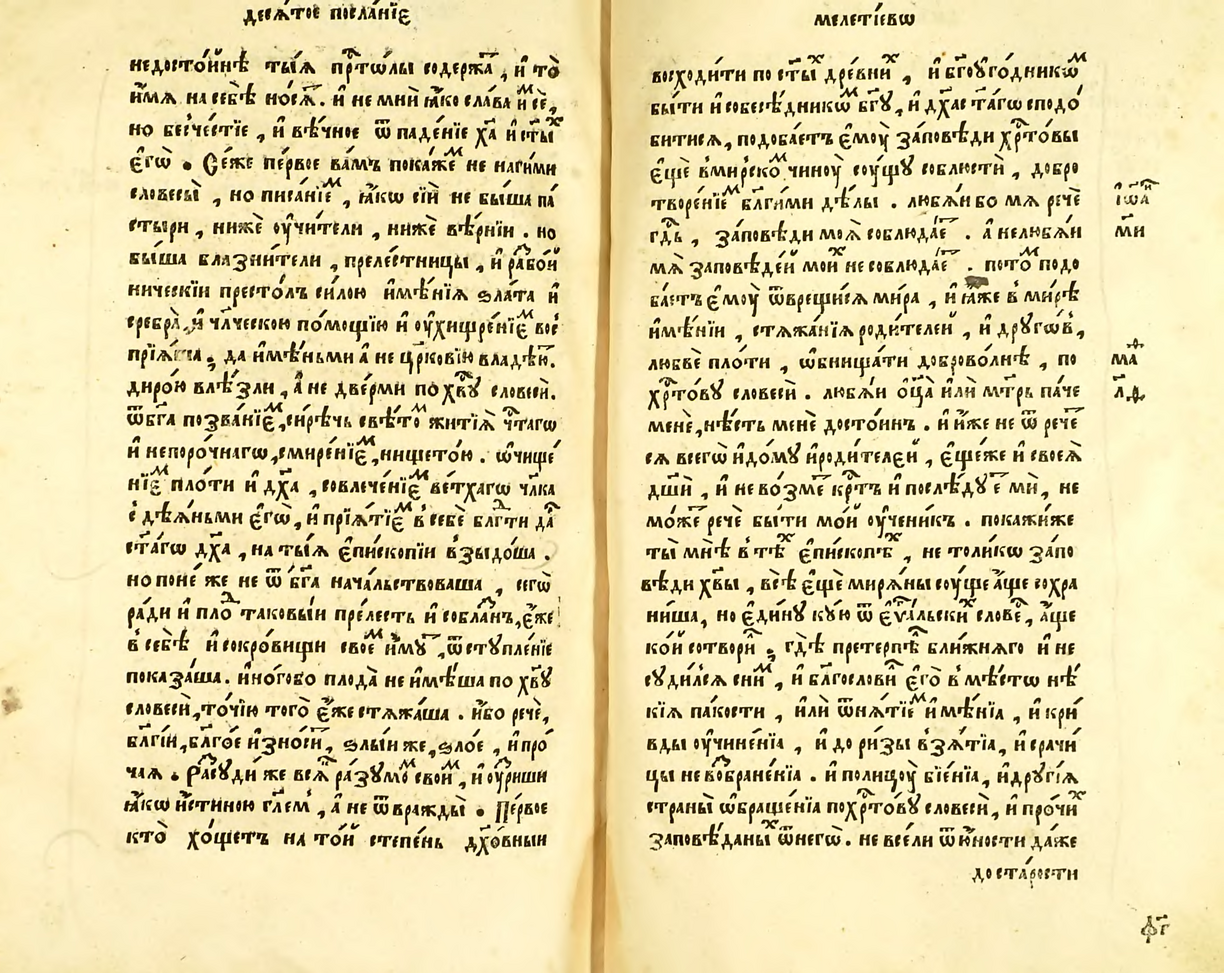 десѧ́тое посла́нїє
недосто́йнѣ ты́ѧ прⷭ҇то́лы содержа́т, и҆ то̀
и҆́мѧ на себѣ̀ но́сѧⷮ. и҆ не мнѝ ꙗ҆́ко сла́ва и҆ⷨ сѐ,
но бесче́стїе, и҆ вѣ́чное ѿпаде́нїе хⷭ҇а и҆ ст҃ыⷯ
є҆гѡ̀. Се́же пе́рвое ва́мъ пока́жеⷨ не наги́ми
словесы̀, но писа́нїєⷨ, ꙗ҆́кѡ сїѝ не бы́ша па́
стыри, нижѐ оу҆чи́тели, нижѐ вѣ́рнїи. но
бы́ша блазни́тели, преле́стницы, и҆ разбо́й
ническїи престо́лъ си́лою и҆мѣ́нїѧ ѕла́та и҆
сребра̀, и҆ чл҃ческою по́мощїю и҆ оу҆хищре́нїєⷨ вос
прїѧ́ша, да и҆мѣ́ньми а҆ не цр҃ко́вїю владѣ́ѝ.
диро́ю влѣ́зли, а҆ не две́рми по хв҃ꙋ словесѝ.
ѿ бг҃а позва́нїєⷨ, си́рѣчь свѣ́тоⷨ житїѧ̀ чⷭ҇таго
и҆ непоро́чнагѡ, смире́нїєⷨ, нището́ю. ѡ҆чище́
нїєⷨ пло́ти и҆ дх҃а, совлече́нїєⷨ ве́тхагѡ чл҃ка
с̾ дѣѧ́ньми є҆гѡ̀, и҆ прїѧ́тїєⷨ в̾ себѐ блгⷣти да
ст҃а́гѡ дх҃а, на ты́ѧ є҆пископїи взыдо́ша.
но поне́же не ѿ бг҃а нача́льствоваша, сегѡ̀
ра́ди и҆ плоⷣ таковы́и пре́лесть и҆ собла́знъ, є҆́же
в̾ себѣ̀ и҆ сокро́вищи свое́ⷨ и҆́мꙋⷮ, ѿстꙋпле́нїе
показа́ша. и҆но́гобо плода̀ не и҆мѣ́ша по хв҃ꙋ
словесѝ, то́чїю того̀ є҆́же стѧжа́ша. и҆́бо речѐ,
бл҃гі́и, бл҃го́е и҆зно́сиⷮ, ѕлы́и же, ѕло́е, и҆ про́
чаѧ. Расꙋди́ же всѧ̀ ра́зꙋмоⷨ свои́ⷨ, и҆ оу҆́зриши
ꙗ҆́кѡ и҆́стиною гл҃емъ, а҆ не ѿ вражды̀. Пе́рвое
кто̀ хо́щетъ на то́й степе́нь дх҃о́вныи
меле́тїевѡ
восходи́ти по ст҃ыⷯ дре́вниⷯ, и҆ бг҃оуго́дникѡⷨ
бы́ти и҆ собесѣ́дникѡⷨ бг҃ꙋ, и҆ дх҃а ст҃а́гѡ сподо́
битисѧ, подоба́етъ є҆моу̀ за́повѣди хрⷭ҇то́вы
є҆щѐ в̾мирско́ⷨ чиноу̀ соу́щꙋ соблюстѝ, добро
творе́нїєⷨ бл҃ги́ми дѣ́лы. любѧ́и бо мѧ̀ речѐ
гдⷭ҇ь, за́повѣди моѧ̀ соблюда́еⷮ. а҆ не любѧ́и
мѧ̀ за́повѣде́й мои́ⷯ не соблюда́еⷮ. пото́ⷨ подо
ба́етъ є҆моу̀ ѿврещи́сѧ ми́ра, и҆ ꙗ҆́же в̾ ми́рѣ
и҆мѣ́нїи, стѧжа́нїѧ роди́телеи, и҆ дрꙋго́въ,
любвѐ пло́ти, ѡ҆бнища́ти доброво́лнѣ, по
хрⷭ҇то́вꙋ словесѝ. любѧ́и ѻ҆ц҃а̀ и҆лѝ мт҃рь па́че
менѐ, нѣ́сть менѐ досто́инъ. и҆ и҆́же не ѿрече́т
сѧ всегѡ̀ и҆ до́мꙋ и҆ роди́телєи, є҆ще́же и҆ своеѧ̀
дш҃ѝ, и҆ не во́змеⷮ крⷭ҇тъ и҆ послѣ́дꙋеⷮ мѝ, не
мо́же речѐ бы́ти мо́й оу҆чени́къ. пока́жи́же
ты̀ мнѣ̀ в̾ тѣⷯ є҆пископѣⷯ, не толи́кѡ за́по
вѣди хв҃ы, всѣ̀ є҆щѐ мирѧ́ны соу́ще а҆́ще сохра
ни́ша, но є҆ди́нꙋ кꙋ́ю ѿ є҆ѵⷢ҇а́льскиⷯ слове́с, а҆́ще
ко́й сотвори́. гдѣ̀ претерпѣ̀ бли́жнѧго и҆ не
сꙋди́лсѧ сни́ⷨ, и҆ бл҃гослови̂ є҆го̀ в̾ мѣ́стѡ нѣ́
кїѧ па́кости, и҆́ли ѿнѧ́тїєⷨ и҆мѣ́нїа, и҆ кри́
вды оу҆чине́нїа, и҆ до ри́зы взѧ́тїа, и҆ срачи́
цы не возбране́нїа. и҆ полищоу̀ бїе́нїа, и҆ дрꙋгі́ѧ
страны̀ ѡ҆браще́нїа по хрⷭ҇то́вꙋ словесѝ, и҆ про́чиⷯ
за́повѣданыⷯ ѿ негѡ̀. не все́ли ѿ ю҆́ности да́же
до ста́рости
і҆ѡа҃
м҃и
маⷴ
л҃д
фг҃